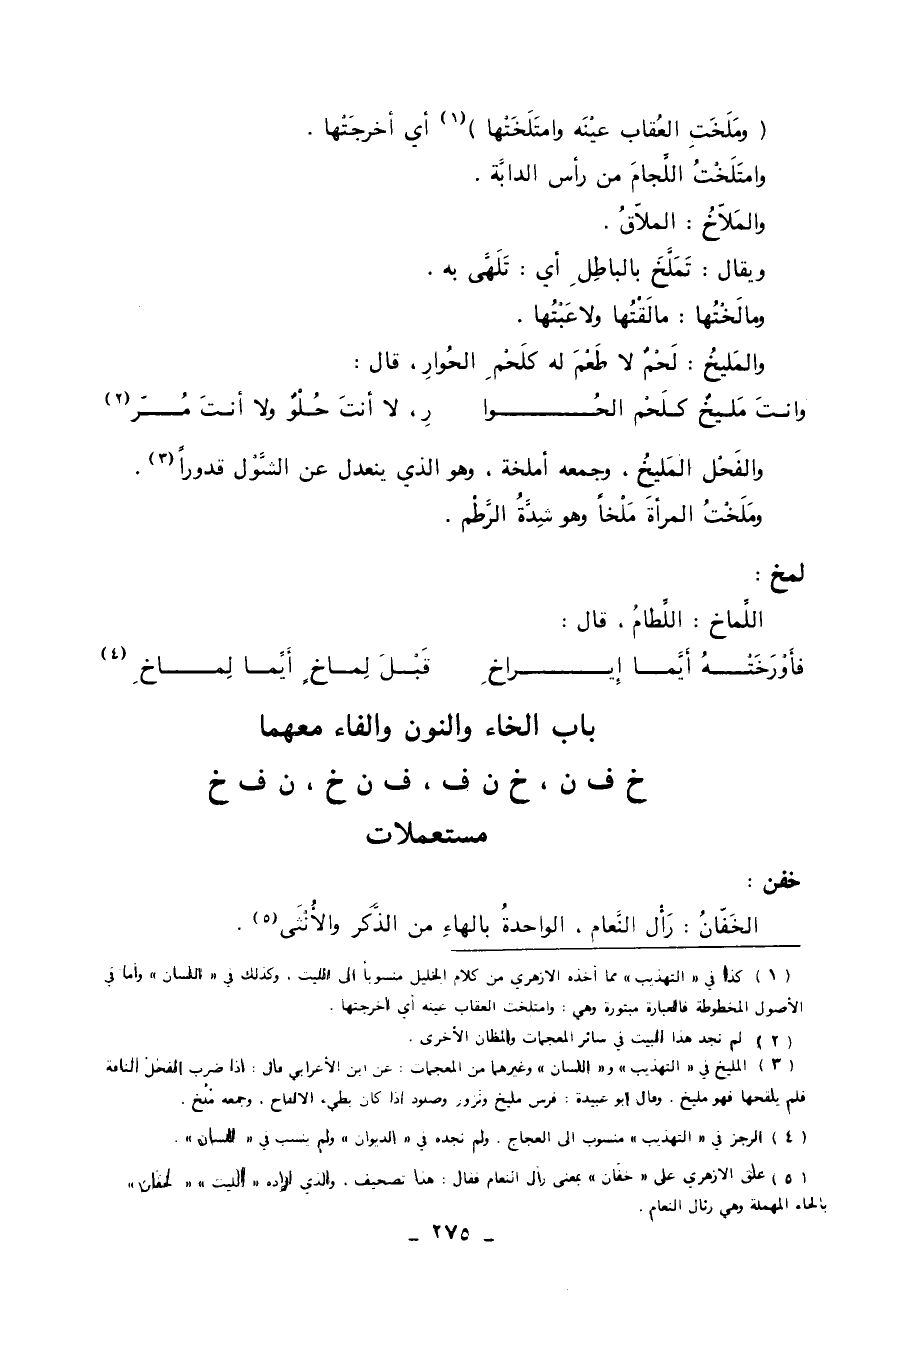 ( ومَلَخَتِ العُقاب عينَه وامتَلَخَتْها )(١) أي أخرجَتْها .
وامتَلَخْتُ اللِّجامَ من رأس الدابَّة .
والمَلاّخُ : الملاّقُ .
ويقال : تَمَلَّخَ بالباطِلِ أي : تَلَهَّى به .
ومالَخْتُها : مالَقْتُها ولاعَبْتُها .
والمَليخُ : لَحْمٌ لا طَعْمَ له كلَحْمِ الحُوارِ ، قال :
وانـت مَلـيخٌ كـلَحْم الحُـــــــوا رِ ، لا أنتَ حُـلْوٌ ولا أنـتَ مُـــرّ(٢)
والفَحْل المَليخُ ، وجمعه أملخة ، وهو الذي ينعدل عن الشَّوْل قدوراً(٣) .
ومَلَخْتُ المرأةَ مَلْخاً وهو شِدَّةُ الرَّطْم .
لمخ :
اللِّماخ : اللِّطامُ ، قال :
فأوْرَخَتْـــهُ أيَّمـــا إيـــــــراخِ قَبْــلَ لِمـاخٍ أيَّمـا لِمــــاخِ (٤)
باب الخاء والنون والفاء معهما
خ ف ن ، خ ن ف ، ف ن خ ، ن ف خ
مستعملات
خفن :
الخَفّانُ : رَأل النَّعام ، الواحدةُ بالهاءِ من الذَّكر والأُنْثَى(٥) .
( ١ ) كذا في « التهذيب » مما أخذه الازهري من كلام الخليل منسوباً الى الليث ، وكذلك في « اللسان » وأما في
الأصول المخطوطة فالعبارة مبتورة وهي : وامتلخت العقاب عينه أي أخرجتها .
( ٢ ) لم نجد هذا البيت في سائر المعجمات والمظان الأخرى .
( ٣ ) المليخ في « التهذيب » و« اللسان » وغيرهما من المعجمات : عن ابن الأعرابي قال : اذا ضرب الفحل الناقة
فلم يلقحها فهو مليخ . وقال أبو عبيدة : فرس مليخ ونزور وصلود اذا كان بطيء الالقاح ، وجمعه مُلُخ .
( ٤ ) الرجز في « التهذيب » منسوب الى العجاج . ولم نجده في « الديوان » ولم ينسب في « اللسان » .
( ٥ ) علق الازهري على « خفّان » بمعنى رأل النعام فقال : هذا تصحيف ، والذي اراده « الليث » « لحفّان »
بالحاء المهملة وهي رئال النعام .
ـ ٢٧٥ ـ